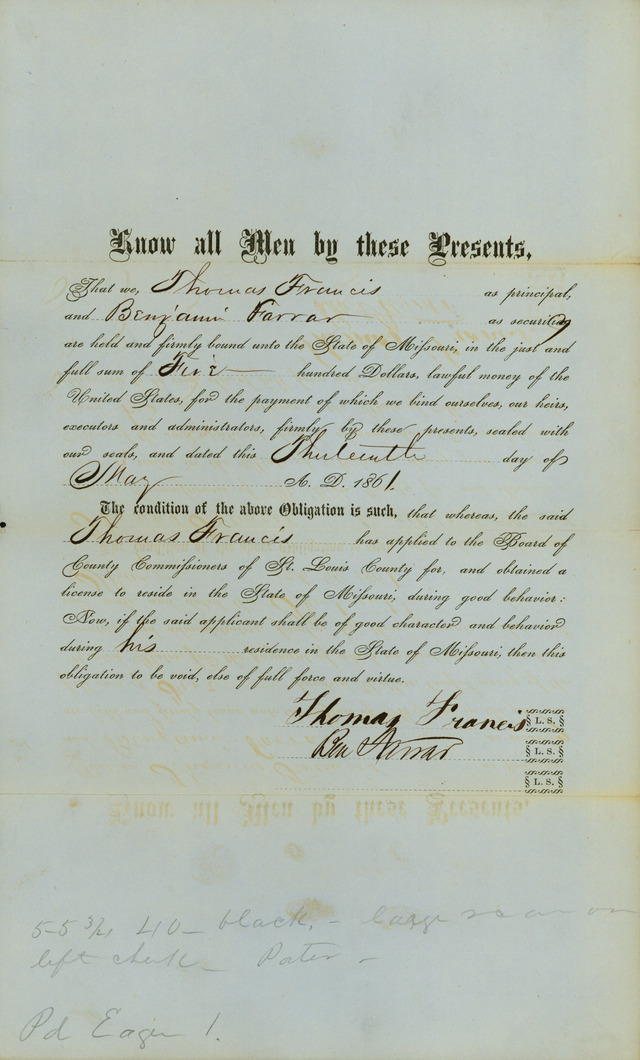 Know all Men by these Presents,
That we, Thomas Francis as principal,
and Benjamin Farrar as securities
are held and firmly bound unto the State of Missouri, in the just and
full sum of Five hundred Dollars, lawful money of the
United States, for the payment of which we bind ourselves, our heirs,
executors and administrators, firmly by these presents, sealed with
our seals, and dated this Thirteenth day of
May A. D. 1861.
The condition of the above Obligation is such, that whereas, the said
Thomas Francis has applied to the Board of
County Commissioners of St. Louis County for, and obtained a
license to reside in the State of Missouri, during good behavior:
Now, if the said applicant shall be of good character and behavior
during his residence in the State of Missouri, then this
obligation to be void, else of full force and virtue.
Thomas Francis L. S.
Ben Farrar L. S.
L. S.
5-5 3/4 40 - black, - large scar on
left cheek - Porter -
Pd Eager 1.